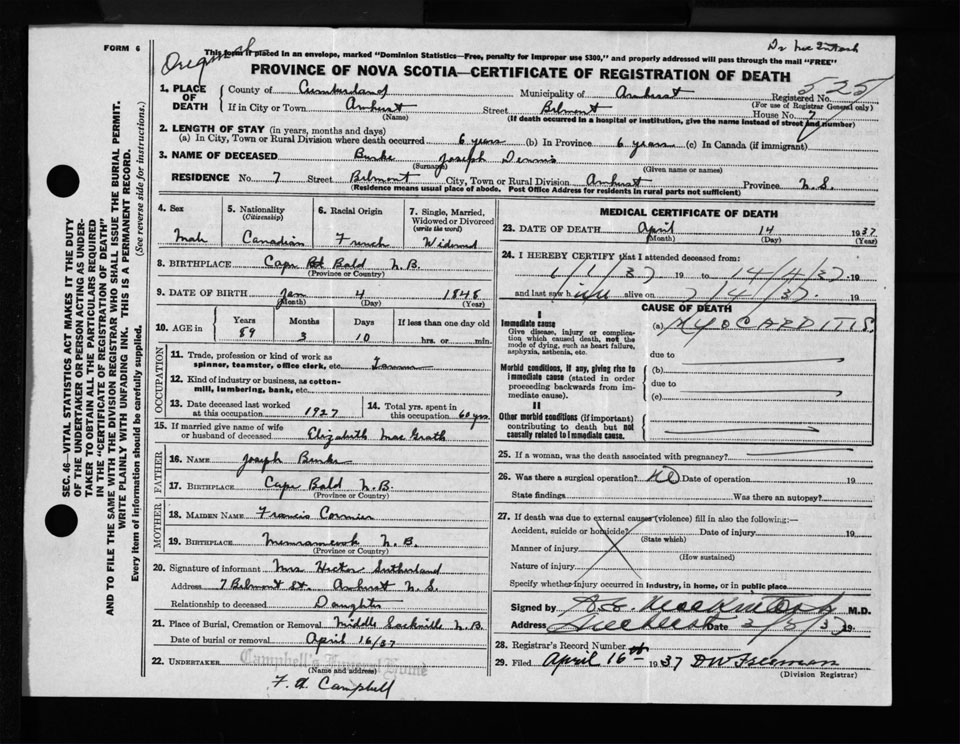 FORM 6
Original
Dr MacIntosh
This form if placed in an envelope, marked "Dominion Statistics—Free, penalty for improper use $300," and properly addressed will pass through the mail "FREE"
PROVINCE OF NOVA SCOTIA—CERTIFICATE OF REGISTRATION OF DEATH
525
1. PLACE OF DEATH
County of Cumberland Municipality of Amherst Registered No.
(For use of Registrar General only)
If in City or Town Amherst Street Belmont House No. 7
(Name) (If death occurred in a hospital or institution, give the name instead of street and number)
2. LENGTH OF STAY (in years, months and days)
(a) In City, Town or Rural Division where death occurred 6 years (b) In Province 6 years (c) In Canada (if immigrant)
3. NAME OF DECEASED Burke Joseph Dennis
(Surname) (Given name or names)
RESIDENCE No. 7 Street Belmont City, Town or Rural Division Amherst Province N.S.
(Residence means usual place of abode. Post Office Address for residents in rural parts not sufficient)
4. Sex 5. Nationality (Citizenship) 6. Racial Origin 7. Single, Married, Widowed or Divorced (write the word)
Male Canadian French Widowed
8. BIRTHPLACE Cape Bald N.B.
(Province or Country)
9. DATE OF BIRTH Jan 4 1848
(Month) (Day) (Year)
10. AGE in Years Months Days If less than one day old
89 3 10 hrs. or min.
OCCUPATION
11. Trade, profession or kind of work as spinner, teamster, office clerk, etc.
12. Kind of industry or business, as cotton-mill, lumbering, bank, etc.
13. Date deceased last worked at this occupation 1927 14. Total yrs. spent in this occupation 60 yrs.
15. If married give name of wife or husband of deceased Elizabeth MacGrath
FATHER
16. NAME Joseph Burke
17. BIRTHPLACE Cape Bald N.B.
(Province or Country)
MOTHER
18. MAIDEN NAME Francis Cormier
19. BIRTHPLACE Memramcook N.B.
(Province or Country)
20. Signature of informant Mrs Hector Sutherland
Address 7 Belmont St. Amherst N.S.
Relationship to deceased Daughter
21. Place of Burial, Cremation or Removal Middle Sackville N.B.
Date of burial or removal April 16/37
22. UNDERTAKER Campbell's Funeral Home
(Name and address)
F. A. Campbell
MEDICAL CERTIFICATE OF DEATH
23. DATE OF DEATH April 14 1937
(Month) (Day) (Year)
24. I HEREBY CERTIFY that I attended deceased from:
1/1/37 19 to 14/4/37 19
and last saw h im alive on 7/4/37 19
CAUSE OF DEATH
I
Immediate cause
Give disease, injury or complication which caused death, not the mode of dying, such as heart failure, asphyxia, asthenia, etc.
(a) MYOCARDITIS.
due to
Morbid conditions, if any, giving rise to immediate cause (stated in order proceeding backwards from immediate cause).
(b)
due to
(c)
II
Other morbid conditions (if important) contributing to death but not causally related to immediate cause.
25. If a woman, was the death associated with pregnancy?
26. Was there a surgical operation? NO Date of operation 19
State findings Was there an autopsy?
27. If death was due to external causes (violence) fill in also the following:—
Accident, suicide or homicide? Date of injury 19
(State which)
Manner of injury
(How sustained)
Nature of injury
Specify whether injury occurred in industry, in home, or in public place
Signed by MacKintosh M.D.
Address Amherst Date 3/5/37 19
28. Registrar's Record Number
29. Filed April 16 1937 DW Freeman
(Division Registrar)
SEC. 46—VITAL STATISTICS ACT MAKES IT THE DUTY OF THE UNDERTAKER OR PERSON ACTING AS UNDERTAKER TO OBTAIN ALL THE PARTICULARS REQUIRED IN THE "CERTIFICATE OF REGISTRATION OF DEATH" AND TO FILE THE SAME WITH THE DIVISION REGISTRAR WHO SHALL ISSUE THE BURIAL PERMIT.
WRITE PLAINLY WITH UNFADING INK. THIS IS A PERMANENT RECORD.
Every item of information should be carefully supplied. (See reverse side for instructions.)